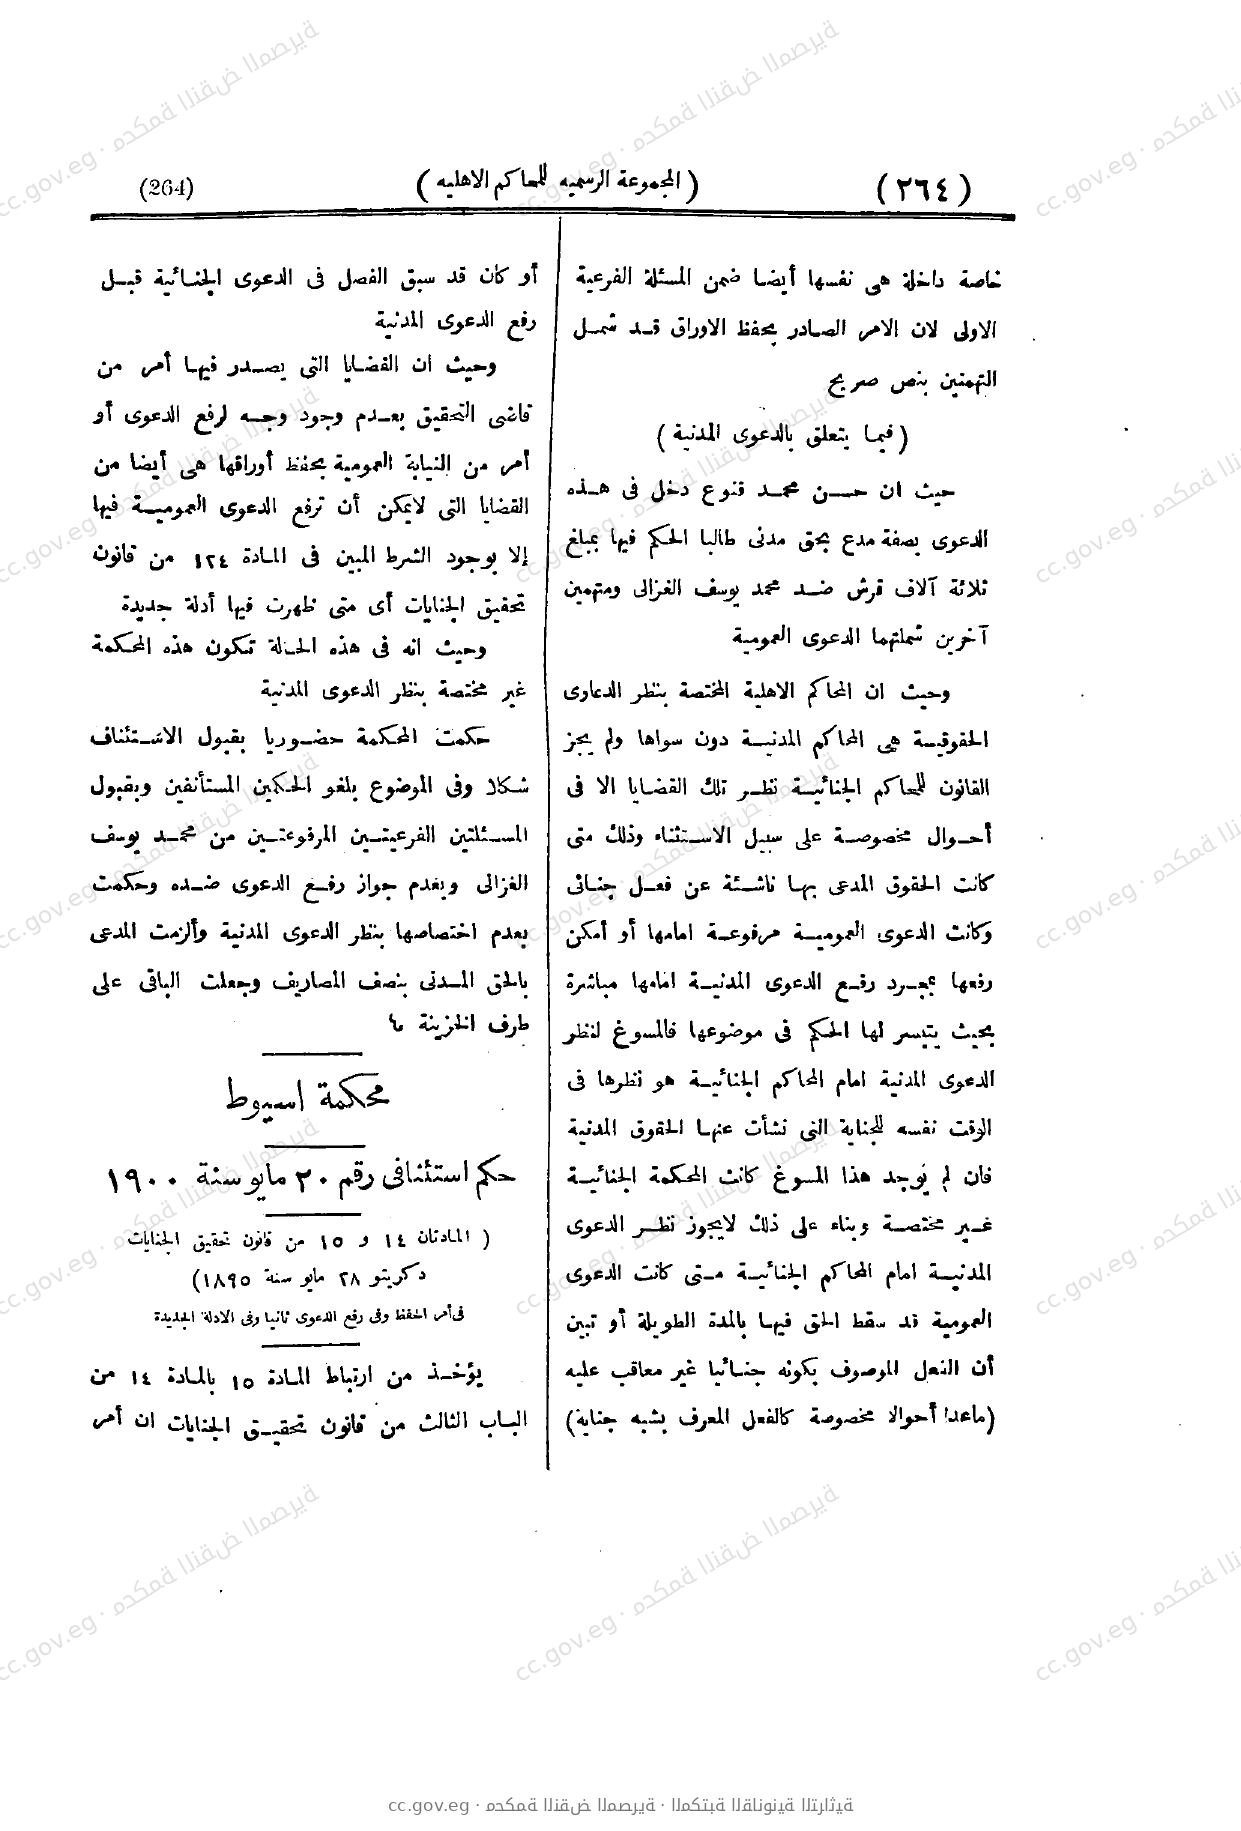 (٢٦٤) (المجموعة الرسميه للمحاكم الاهليه) (264)
خاصة داخلة هى نفسها أيضا ضمن المسئلة الفرعية
الاولى لان الامر الصادر بحفظ الاوراق قد شمل
المتهمين بنص صريح
(فيما يتعلق بالدعوى المدنية)
حيث ان حسن محمد قنوع دخل فى هذه
الدعوى بصفة مدع بحق مدنى طالبا الحكم فيها بمبلغ
ثلاثة آلاف قرش ضد محمد يوسف الغزالى ومتهمين
آخرين شملتهما الدعوى العمومية
وحيث ان المحاكم الاهلية المختصة بنظر الدعاوى
الحقوقية هى المحاكم المدنية دون سواها ولم يجز
القانون للمحاكم الجنائية نظر تلك القضايا الا فى
أحوال مخصوصة على سبيل الاستثناء وذلك متى
كانت الحقوق المدعى بها ناشئة عن فعل جنائى
وكانت الدعوى العمومية مرفوعة امامها أو أمكن
رفعها بمجرد رفع الدعوى المدنية امامها مباشرة
بحيث يتيسر لها الحكم فى موضوعها فالمسوغ لنظر
الدعوى المدنية امام المحاكم الجنائية هو نظرها فى
الوقت نفسه للجناية التى نشأت عنها الحقوق المدنية
فان لم يوجد هذا المسوغ كانت المحكمة الجنائية
غير مختصة وبناء على ذلك لايجوز نظر الدعوى
المدنية امام المحاكم الجنائية متى كانت الدعوى
العمومية قد سقط الحق فيها بالمدة الطويلة أو تبين
أن الفعل الموصوف بكونه جنائيا غير معاقب عليه
(ماعدا أحوالا مخصوصة كالفعل المعرف بشبه جناية)
أو كان قد سبق الفصل فى الدعوى الجنائية قبل
رفع الدعوى المدنية
وحيث ان القضايا التى يصدر فيها أمر من
قاضى التحقيق بعدم وجود وجه لرفع الدعوى أو
أمر من النيابة العمومية بحفظ أوراقها هى أيضا من
القضايا التى لايمكن أن ترفع الدعوى العمومية فيها
إلا بوجود الشرط المبين فى المادة ١٢٤ من قانون
تحقيق الجنايات أى متى ظهرت فيها أدلة جديدة
وحيث انه فى هذه الحالة تكون هذه المحكمة
غير مختصة بنظر الدعوى المدنية
حكمت المحكمة حضوريا بقبول الاستئناف
شكلا وفى الموضوع بلغو الحكمين المستأنفين وبقبول
المسئلتين الفرعيتين المرفوعتين من محمد يوسف
الغزالى وبعدم جواز رفع الدعوى ضده وحكمت
بعدم اختصاصها بنظر الدعوى المدنية وألزمت المدعى
بالحق المدنى بنصف المصاريف وجعلت الباقى على
طرف الخزينة
محكمة اسيوط
حكم استئنافى رقم ٢٠ مايو سنة ١٩٠٠
(المادتان ١٤ و ١٥ من قانون تحقيق الجنايات
دكريتو ٢٨ مايو سنة ١٨٩٥)
فى أمر الحفظ وفى رفع الدعوى ثانيا وفى الادلة الجديدة
يؤخذ من ارتباط المادة ١٥ بالمادة ١٤ من
الباب الثالث من قانون تحقيق الجنايات ان أمر
cc.gov.eg · محكمة النقض المصرية · المكتبة القانونية التراثية